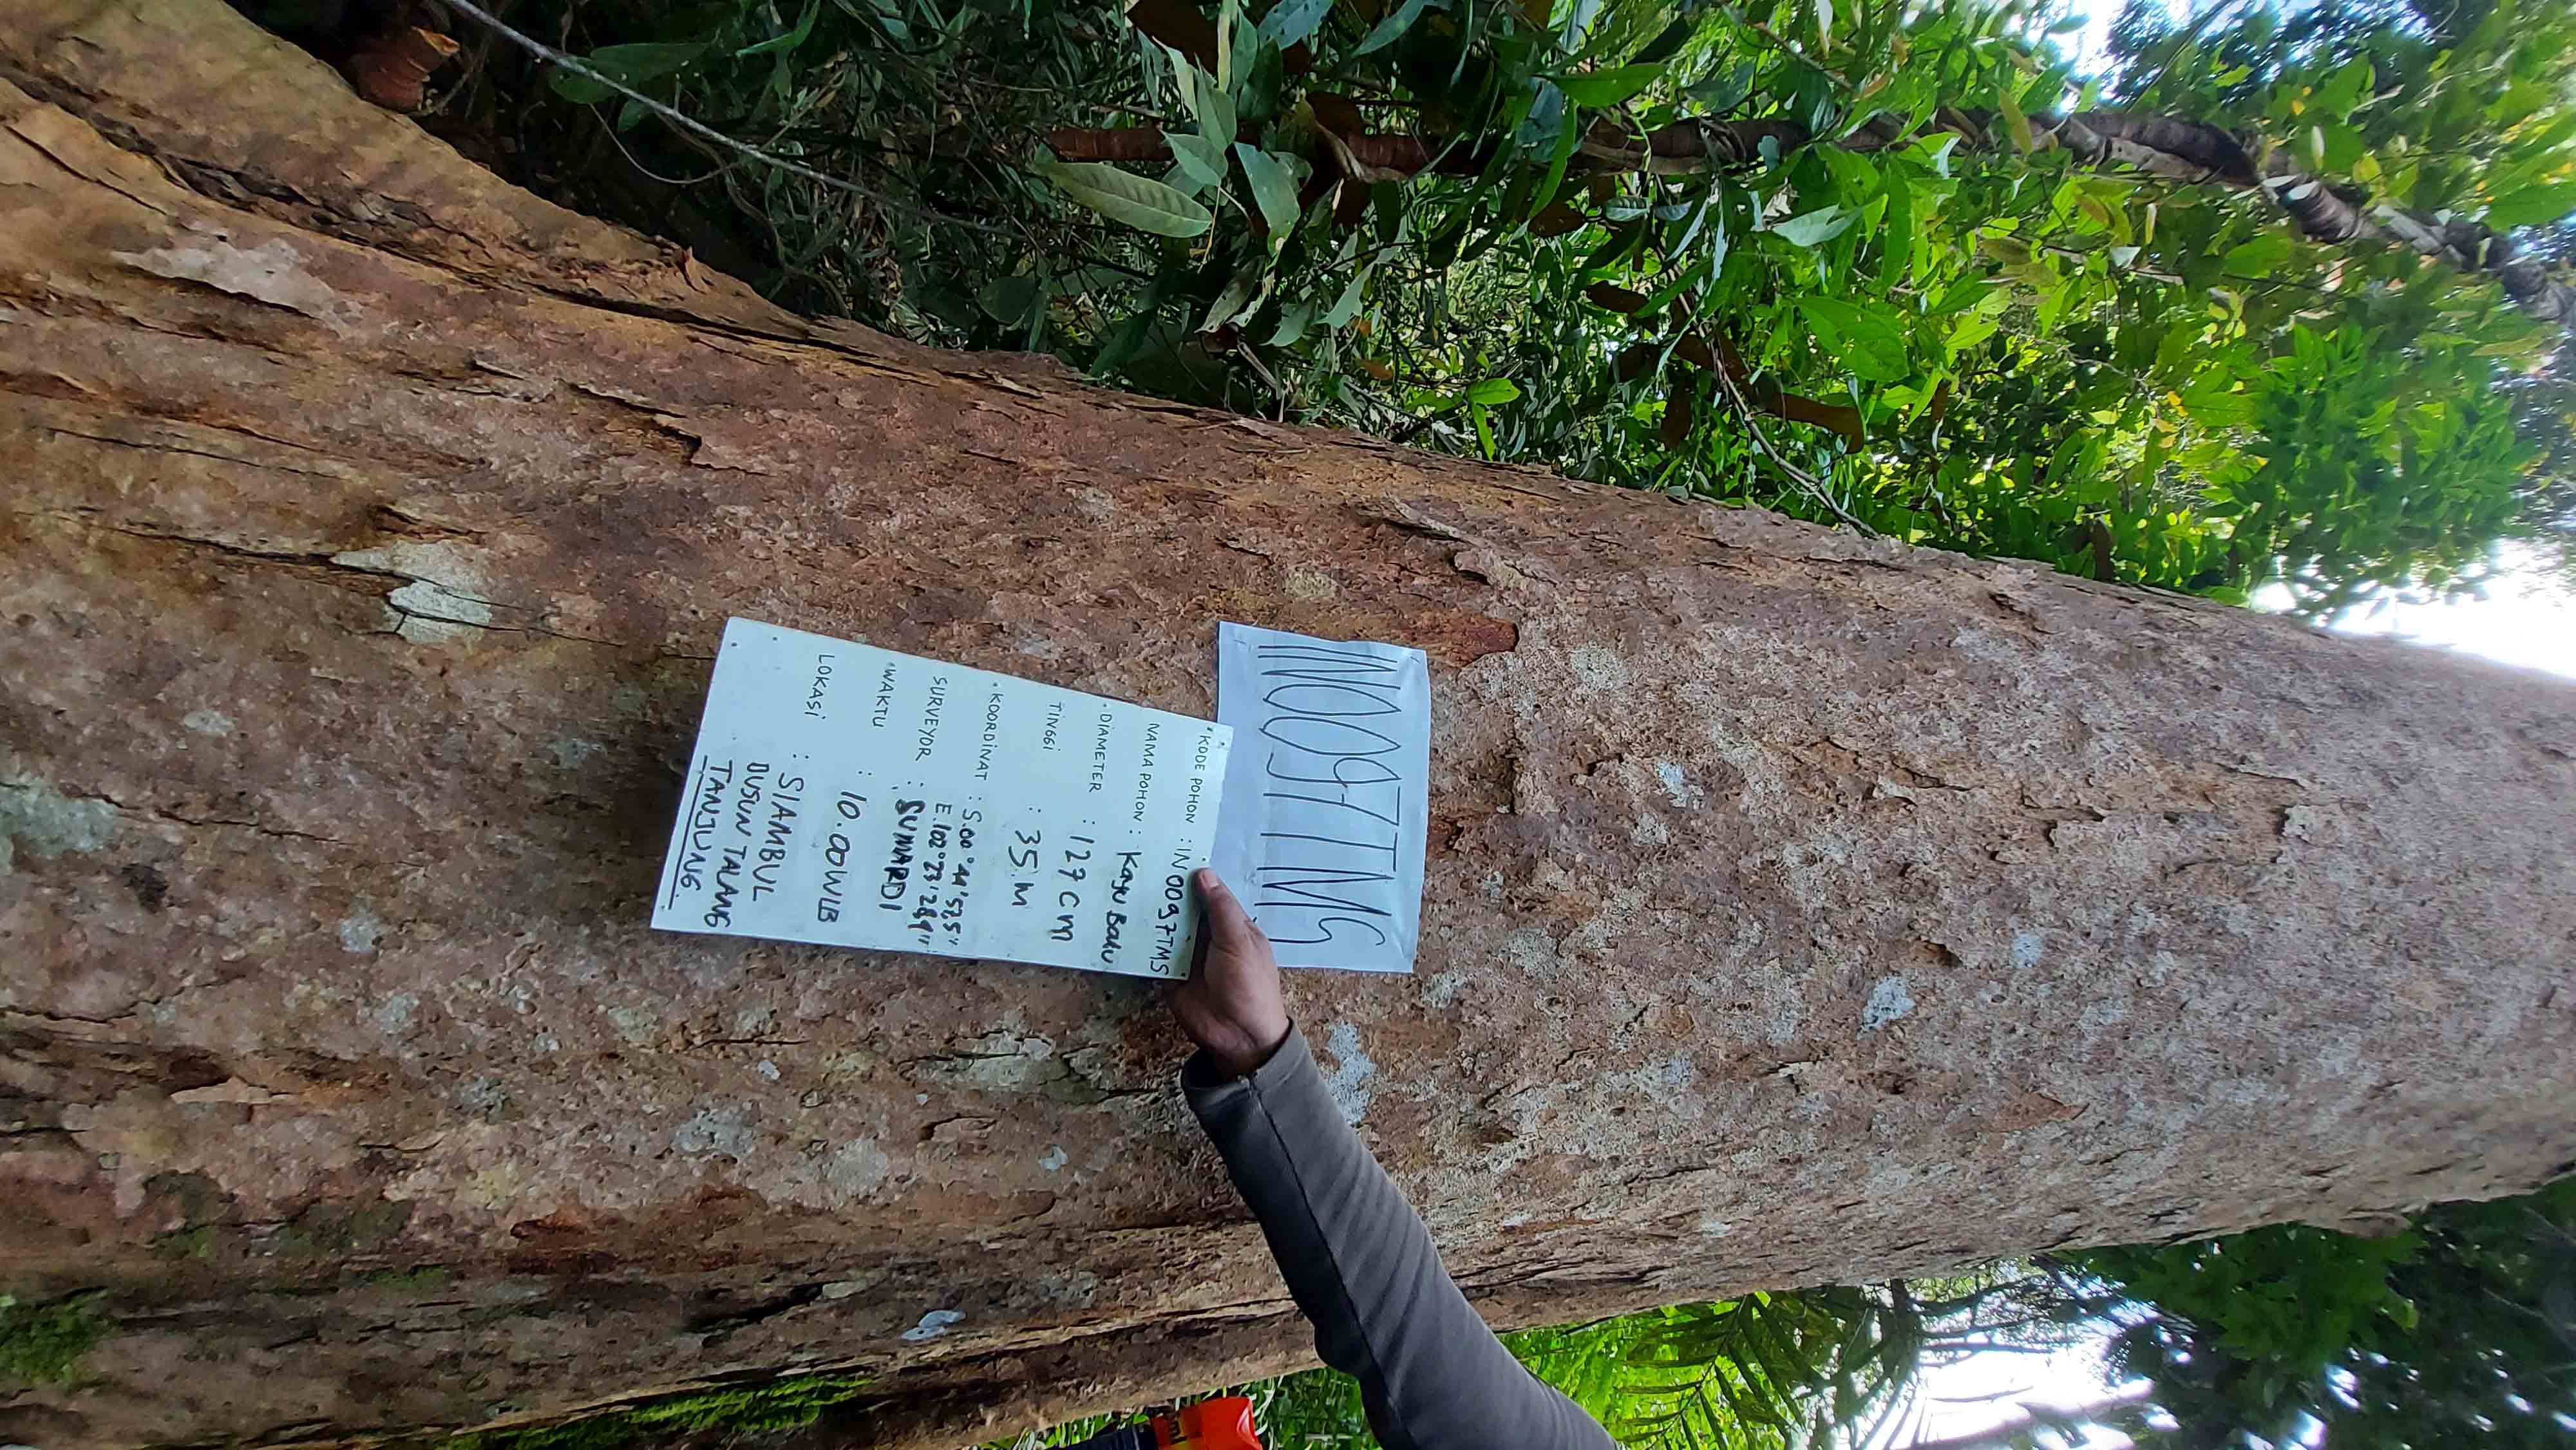 IN0097TMS
KODE POHON : IN0097TMS
NAMA POHON : Kayu Batu
DIAMETER : 127 cm
TINGGI : 35 m
KOORDINAT : S.00°44'52,5"
E.102°23'28,9"
SURVEYOR : SUMARDI
WAKTU : 10.00 WIB
LOKASI : SIAMBUL
DUSUN TALANG
TANJUNG.